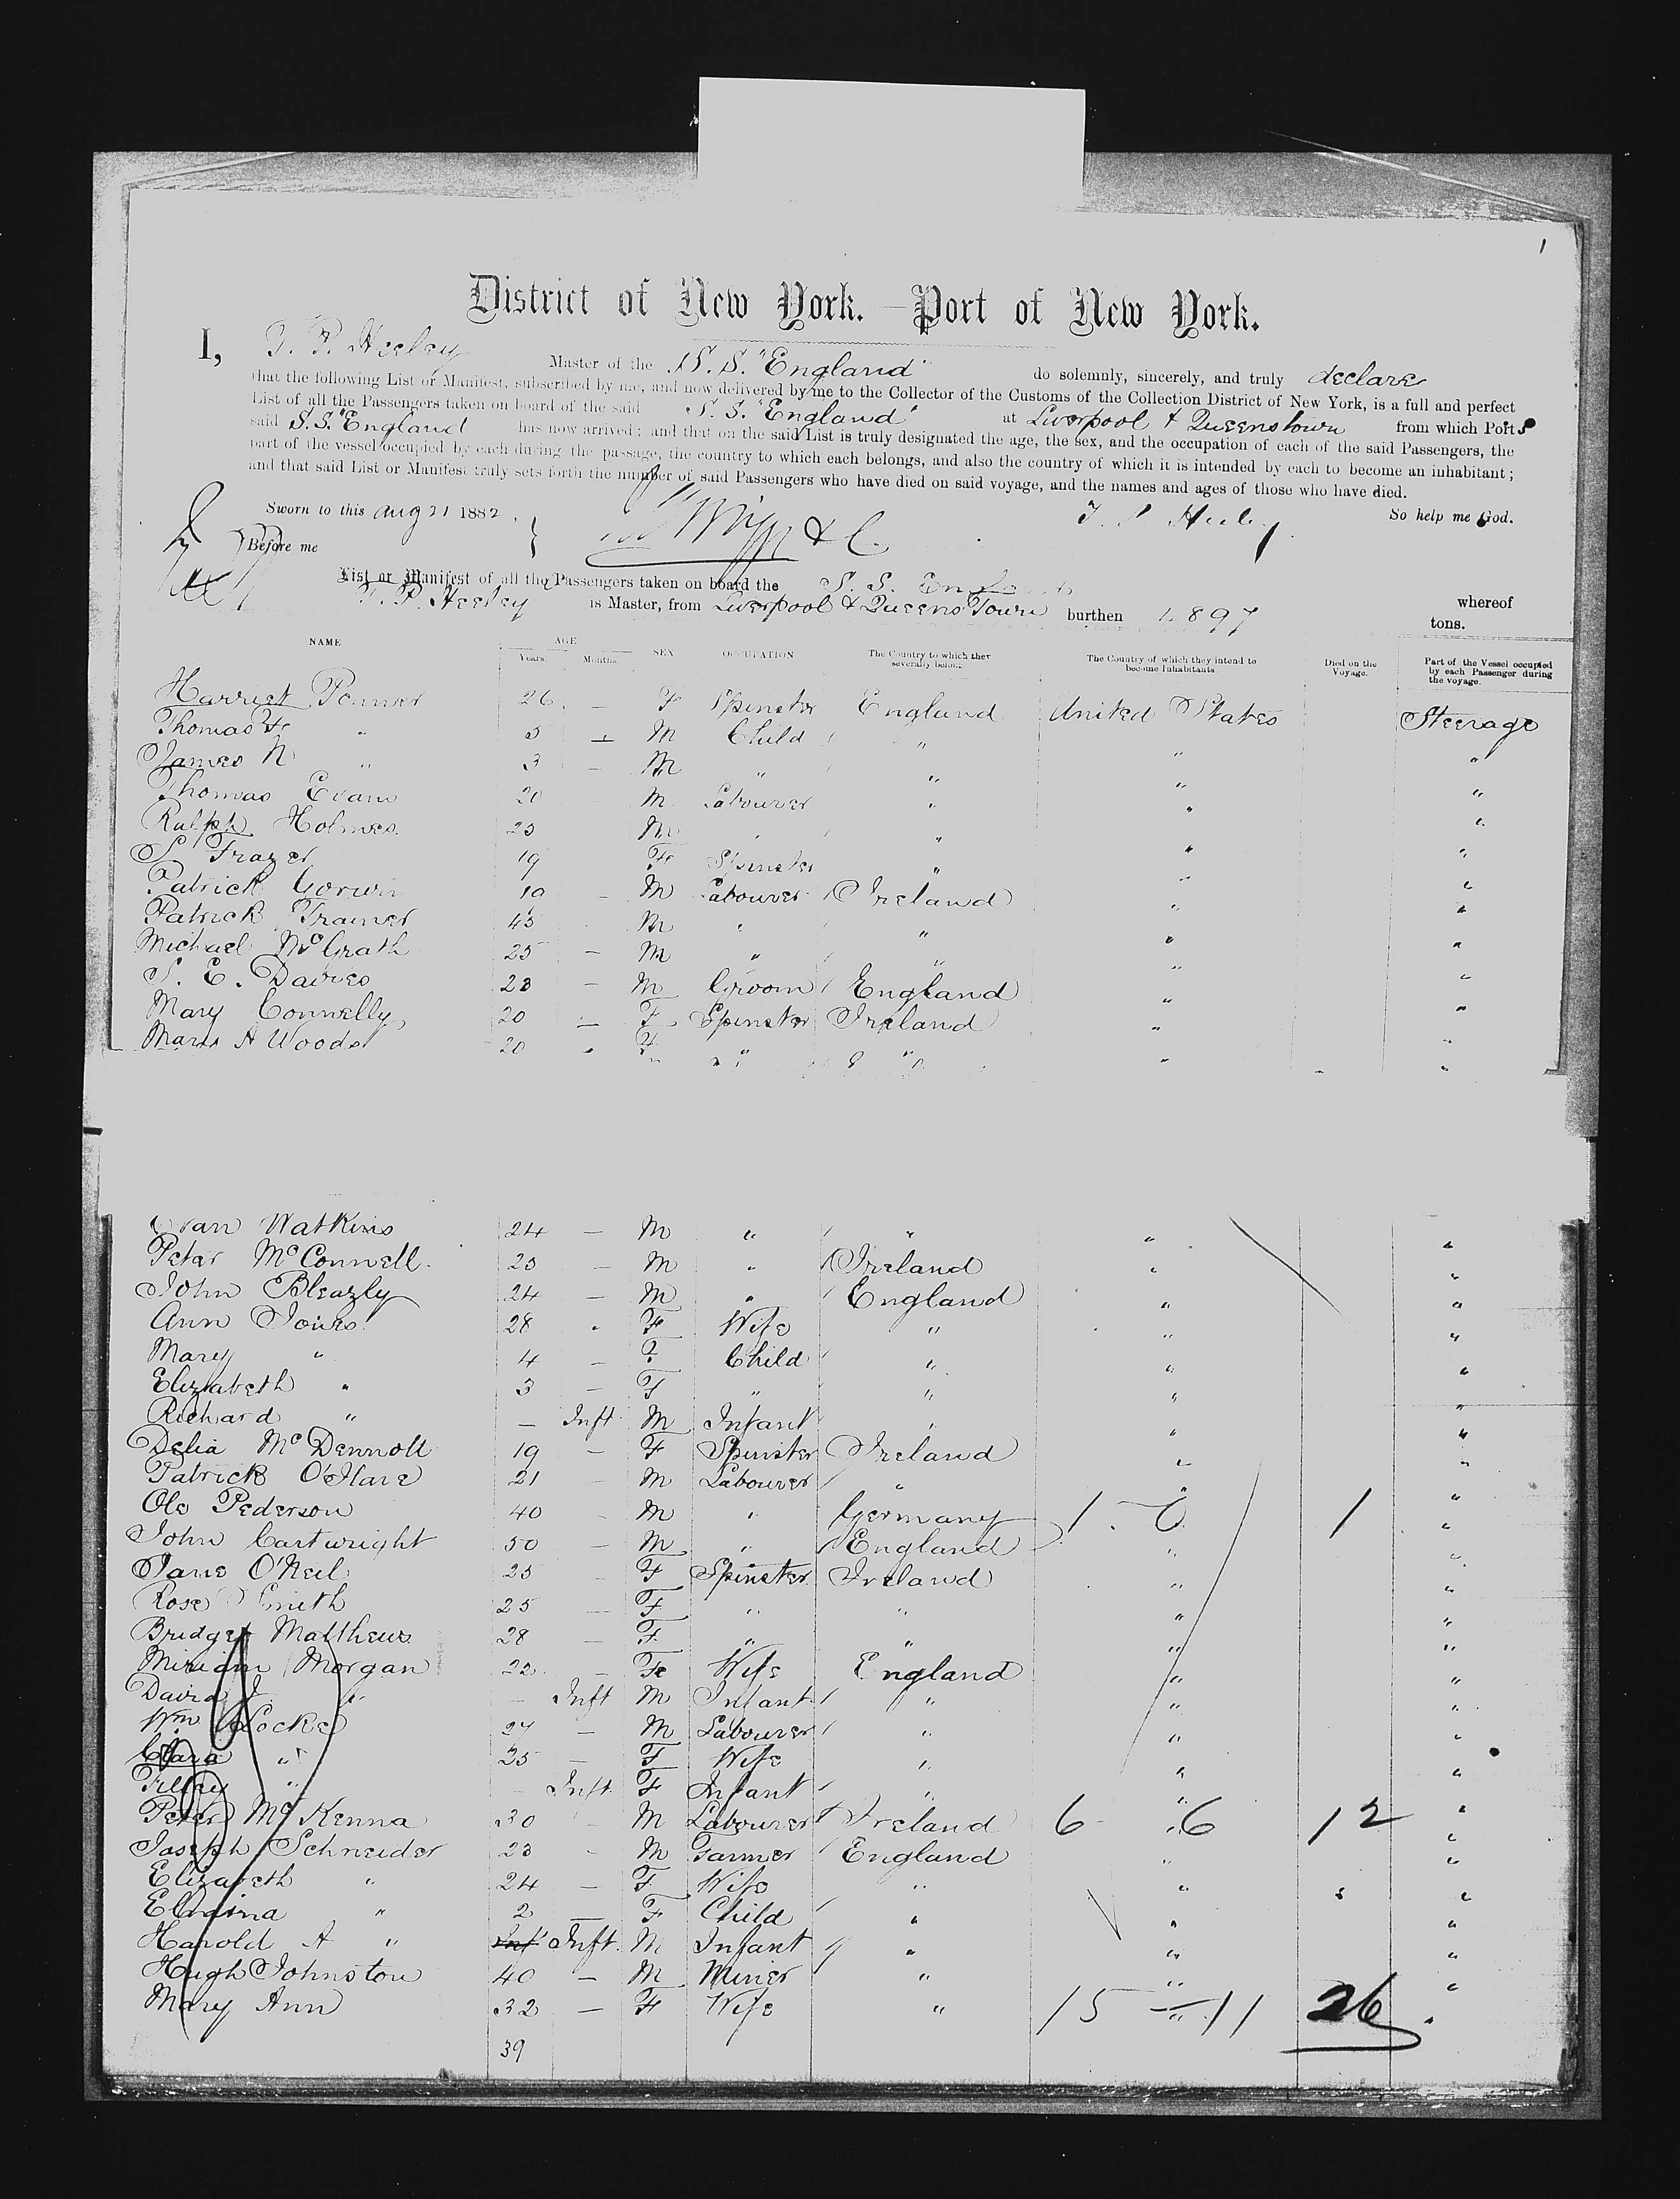 1
District of New York.—Port of New York.
I, T. P. Heeley Master of the S. S. "England" do solemnly, sincerely, and truly declare
that the following List or Manifest, subscribed by me, and now delivered by me to the Collector of the Customs of the Collection District of New York, is a full and perfect
List of all the Passengers taken on board of the said S. S. "England" at Liverpool & Queenstown from which Ports
said S.S. "England has now arrived; and that on the said List is truly designated the age, the sex, and the occupation of each of the said Passengers, the
part of the vessel occupied by each during the passage, the country to which each belongs, and also the country of which it is intended by each to become an inhabitant;
and that said List or Manifest truly sets forth the number of said Passengers who have died on said voyage, and the names and ages of those who have died.
Sworn to this Aug 21 1882. T. P. Heeley So help me God.
Before me
List or Manifest of all the Passengers taken on board the S. S. England whereof
T. P. Heeley is Master, from Liverpool & Queens Town burthen 1897 tons.
NAME AGE Years. Months. SEX OCCUPATION The Country to which they severally belong The Country of which they intend to become Inhabitants. Died on the Voyage. Part of the Vessel occupied by each Passenger during the voyage.
Harriet Penner 26 — F Spinster England United States Steerage
Thomas F " 5 — M Child " " "
James N " 3 — M " " " "
Thomas Evans 20 M Labourer " " "
Ralph Holmes 25 M " " " "
S Frazer 19 F Spinster " " "
Patrick 19 — M Labourer Ireland " "
Patrick Trainer 45 M " " " "
Michael McGrath 25 — M " " " "
S. E. Davies 28 — M Groom England " "
Mary Connelly 20 — F Spinster Ireland " "
Mary A Woods 20 F " " " "
Evan Watkins 24 — M " " " "
Peter McConnell 25 — M " Ireland " "
John Bleazly 24 — M " England " "
Ann Jones 28 F Wife " " "
Mary " 4 — F Child " " "
Elizabeth " 3 — F " " " "
Richard " — Inft M Infant " " "
Delia McDermott 19 — F Spinster Ireland " "
Patrick O'Hare 21 — M Labourer " " "
Ole Pederson 40 M " Germany 1 - 0 1 "
John Cartwright 50 — M " England " "
Jane O'Neil 25 F Spinster Ireland " "
Rose Smith 25 — F " " " "
Bridget Matthews 28 — F " " " "
Miriam Morgan 22 — F Wife England " "
David J " — Inft M Infant " " "
Wm Locke 27 — M Labourer " " "
Clara " 25 — F Wife " " "
" — Inft F Infant " " "
Peter McKenna 30 M Labourer Ireland 6 " 6 12 "
Joseph Schneider 23 M Farmer England " "
Elizabeth " 24 — F Wife " " "
" 2 — F Child " " "
Harold A " Inft Inft M Infant " " "
Hugh Johnston 40 — M Miner " " "
Mary Ann 32 — F Wife " 15 — 11 26 "
39